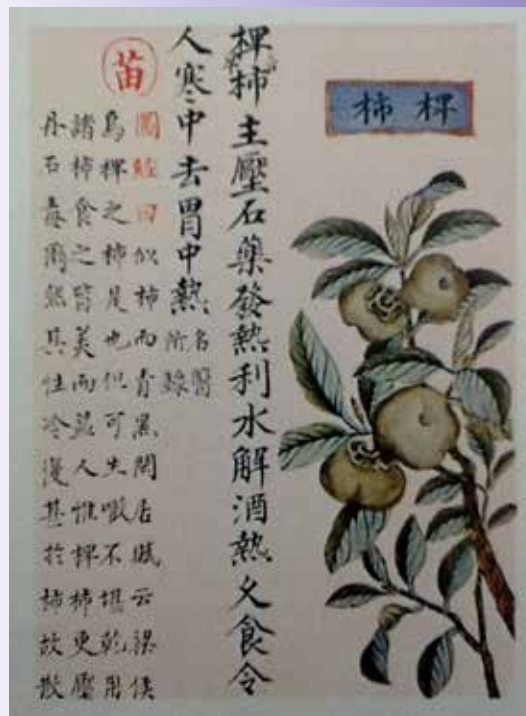 椑柿
椑柿主壓石藥發熱利水解酒熱久食令
人寒中去胃中熱名醫
所錄
苗
圖經曰似柿而青黑閒居賦云梁侯
烏椑之柿是也但可生噉不堪乾用
諸柿食之皆美而益人惟椑柿更壓
丹石毒爾然其性冷復甚於柿故散